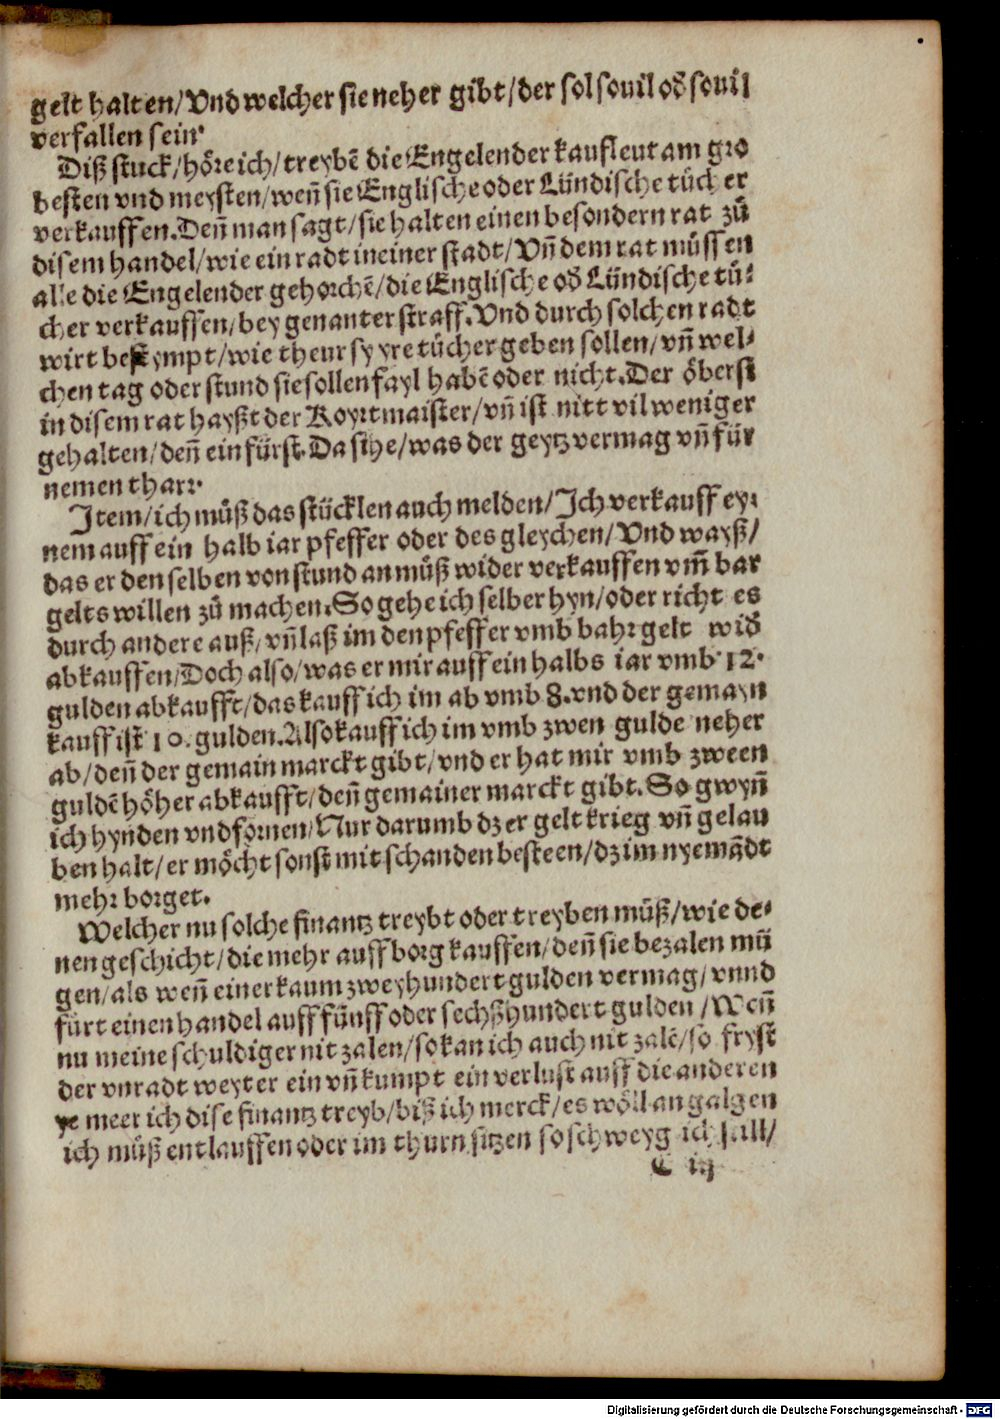 gelt halten/Vnd welcher sie neher gibt/der sol souil od̕ souil
verfallen sein.
Diß stuck/höre ich/treybē die Engelender kaufleut am gro
besten vnd meysten/weñ sie Englische oder Lündische tücher
verkauffen.Deñ man sagt/sie halten einen besondern rat zů
disem handel/wie ein radt in einer stadt/Vñ dem rat müssen
alle die Engelender gehorchē/die Englische od̕ Lündische tü⸗
cher verkauffen/bey genanter straff.Vnd durch solchen radt
wirt bestympt/wie theur sy yre tücher geben sollen/vñ wel⸗
chen tag oder stund sie sollen fayl habē oder nicht.Der öberst
in disem rat hayßt der Koyrtmaister/vñ ist nitt vil weniger
gehalten/deñ ein fürst.Da sihe/was der geytz vermag vñ für
nemen tharr.
Item/ich můß das stücklen auch melden/Ich verkauff ey⸗
nem auff ein halb iar pfeffer oder des gleychen/Vnd wayß/
das er den selben von stund an můß wider verkauffen vm̃ bar
gelts willen zů machen.So gehe ich selber hyn/oder richt es
durch andere auß/vñ laß im den pfeffer vmb bahr gelt wid̕
abkauffen/Doch also/was er mir auff ein halbs iar vmb 12.
gulden abkaufft/das kauff ich im ab vmb 8.vnd der gemayn
kauff ist 10.gulden.Also kauff ich im vmb zwen gulde neher
ab/deñ der gemain marckt gibt/vnd er hat mir vmb zween
guldē höher abkaufft/deñ gemainer marckt gibt.So gwyñ
ich hynden vnd fornen/Nur darumb dz er gelt krieg vñ gelau
ben halt/er möcht sonst mit schanden besteen/dz im nyemādt
mehr borget.
Welcher nu solche finantz treybt oder treyben můß/wie de⸗
nen geschicht/die mehr auff borg kauffen/deñ sie bezalen mü
gen/als weñ einer kaum zweyhundert gulden vermag/vnnd
fürt einen handel auff fünff oder sechßhundert gulden/Weñ
nu meine schuldiger nit zalen/so kan ich auch nit zalē/so fryst
der vnradt weyter ein vñ kumpt ein verlust auff die anderen
ye meer ich dise finantz treyb/biß ich merck/es wöll an galgen
ich můß entlauffen oder im thurn sitzen so schweyg ich still/
C iij
Digitalisierung gefördert durch die Deutsche Forschungsgemeinschaft - DFG